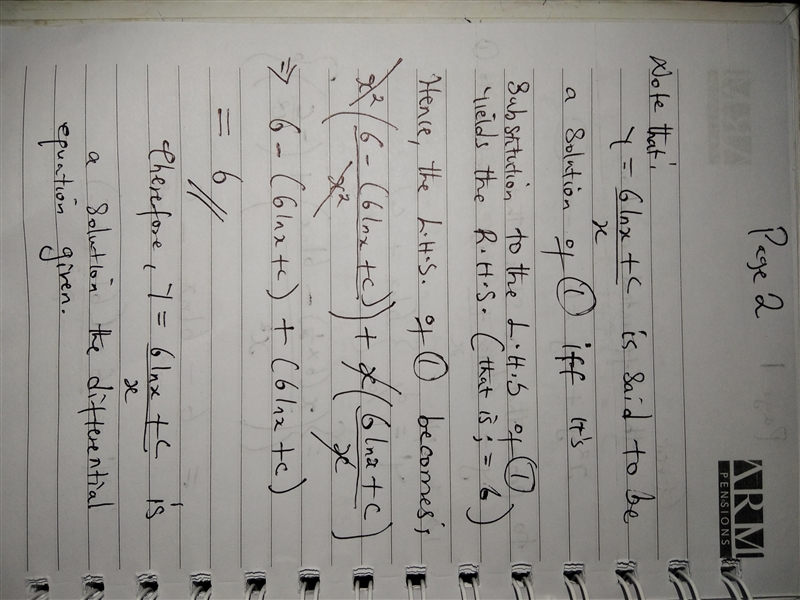 Page 2
ARM
PENSIONS
Note that,
y = 6lnx + c / x is said to be
a solution of ① iff it's
substitution to the L.H.S of ①
yields the R.H.S. (that is; = 6)
Hence, the L.H.S. of ① becomes;
x² (6 - (6lnx + c) / x²) + x (6lnx + c / x)
⇒ 6 - (6lnx + c) + (6lnx + c)
= 6 //
therefore, y = 6lnx + c / x is
a solution the differential
equation given.